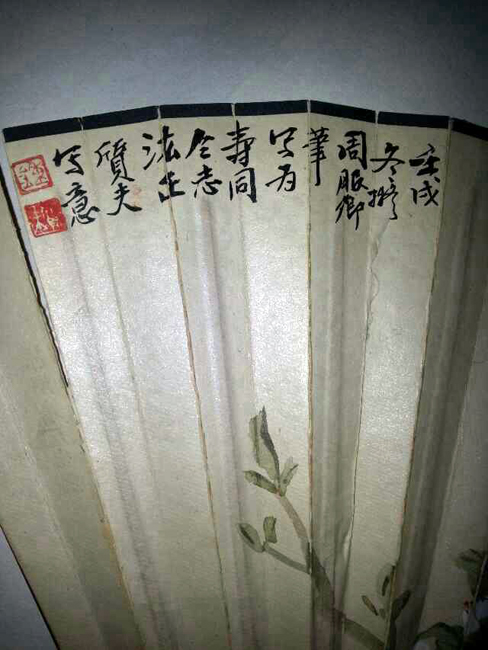 壬戌
冬擬
周服卿
筆
写为
壽同
仝志
法正
質夫
写意